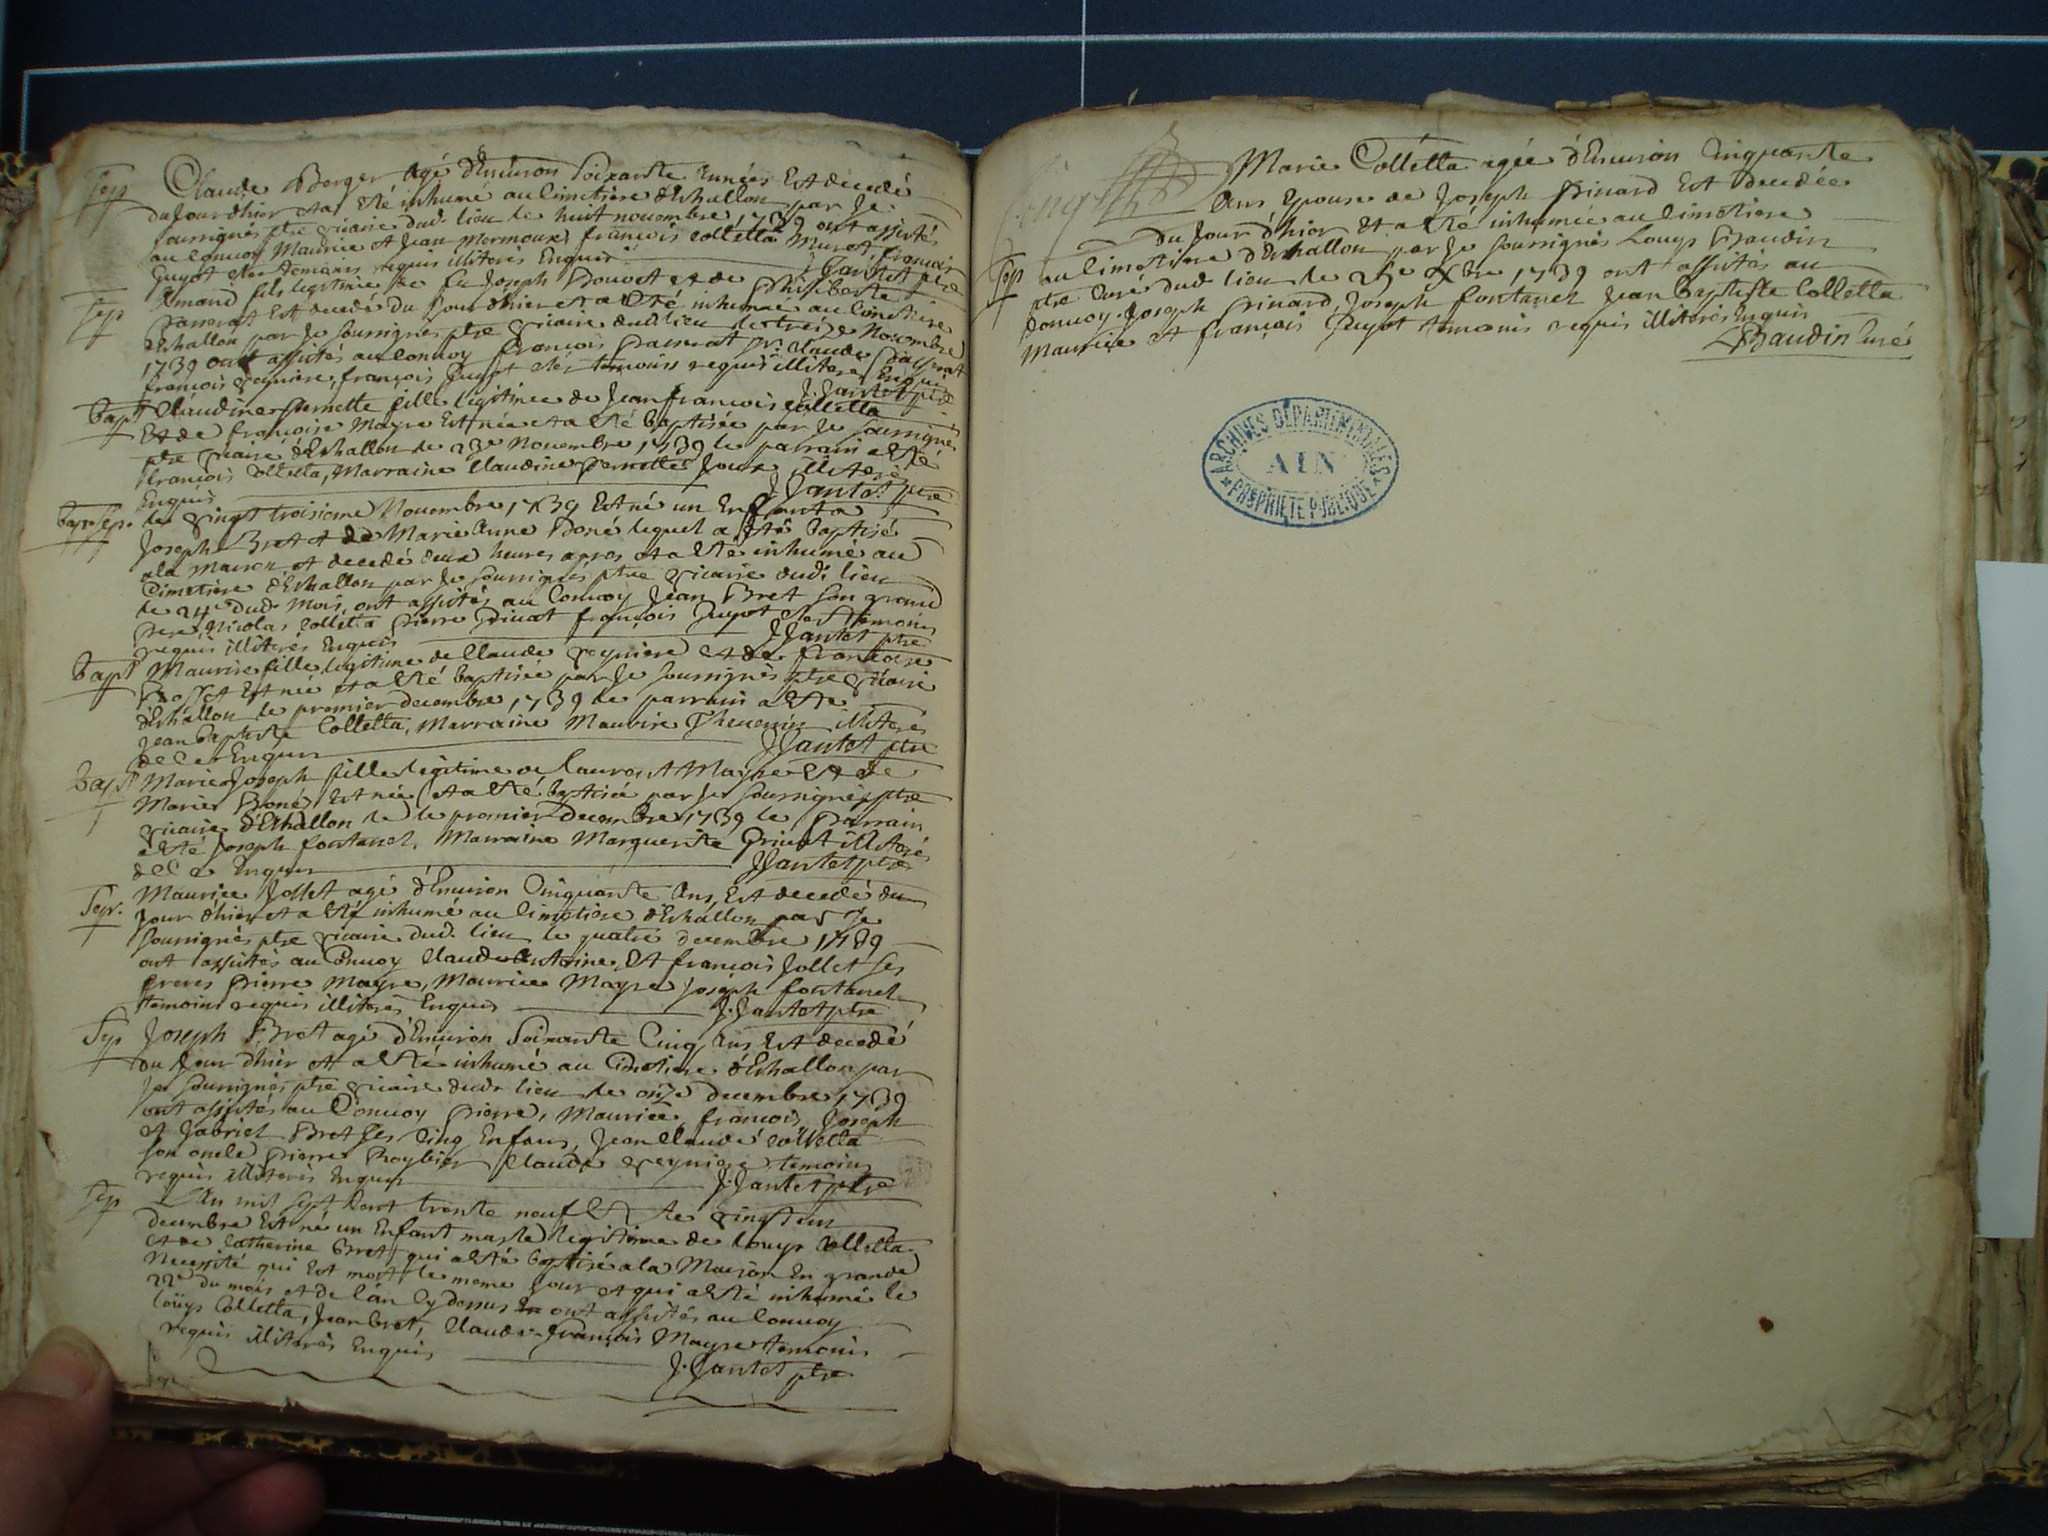 Sep Claude Berger agé d'Environ Soixante Années Est decedé
du Jour d'hier et a Eté inhumé au Cimetiere d'Echallon par Je
soussignés ptre vicaire dud. lieu le huit novembre 1739 ont assistés
au Convoy Maurice et Jean Mermoux, françois Colletta Muret, françois
Guyot clerc temoins requis illiterés Enquis J Jantet ptre
Sep Amand fils legitime de feu Joseph Bouvet et de Philiberte
Passerat Est decedé Du Jour d'hier et a Eté inhumé au Cimetiere
d'Echallon par Je soussignés ptre vicaire dud. lieu le treize Novembre
1739 ont assistés au Convoy françois Passerat Sr. Claude Passerat
françois Veyniere, françois Guyot clerc temoins requis illiteres Enquis
J. Jantet ptre
Bapt Claudine Pernette fille legitime de Jean françois Colletta
Et de françoise Mayre Est née et a Eté baptisée par Je soussignés
ptre vicaire d'Echallon le 23e Novembre 1739 le parrain a Eté
françois Colletta, Marraine Claudine Pernette Joux illiteré
Enquis J Jantet ptre
Bap. Sep. le vingt troisieme Novembre 1739 Est né un Enfant a
Joseph Bret et de Marie Anne Boné lequel a Eté baptisé
a la Maison et decedé deux heures apres et a Eté inhumé au
Cimetiere d'Echallon par Je soussignés ptre vicaire dud. lieu
le 24e dud. Mois, ont assistés au Convoy Jean Bret son grand
pere, Nicolas Colletta Pierre Privat françois Guyot clerc temoins
requis illiterés Enquis J Jantet ptre
Bapt Maurise fille legitime de Claude Veyniere et de françoise
Grosset Est née et a Eté baptisée par Je soussignés ptre vicaire
d'Echallon le premier decembre 1739 le parrain a Eté
Jean Baptiste Colletta, Marraine Maurise Thevenin illiterés
de ce Enquis J Jantet ptre
Bapt Marie Joseph fille legitime de laurent Mayre Et de
Marie Boné Est née et a Eté baptisée par Je soussignés ptre
vicaire d'Echallon le le premier Decembre 1739 le Parrain
a Eté Joseph fontanel, Marraine Marguerite Privat illiterés
de ce Enquis J Jantet ptre
Sep. Maurice Jollet agé d'Environ Cinquante Ans, Est decedé du
Jour d'hier et a Eté inhumé au Cimetiere d'Echallon par Je
soussignés ptre vicaire dud. lieu le quatre decembre 1739
ont assistés au Convoy Claude Antoine, Et françois Jollet ses
freres Pierre Mayre, Maurice Mayre Joseph fontanel
temoins requis illiterés Enquis J. Jantet ptre
Sep Joseph Bret agé d'Environ Soixante Cinq Ans Est decedé
du Jour d'hier et a Eté inhumé au Cimetiere d'Echallon par
Je soussignés ptre vicaire dud. lieu le onze decembre 1739
ont assistés au Convoy Pierre, Maurice, françois, Joseph
et Gabriel Bret ses Cinq Enfans, Jean Claude Colletta
son oncle Pierre Claude Veyniere temoins
requis illiterés Enquis J. Jantet ptre
Sep L'An mil sept Cent trente neuf Et le vingt un
decembre Est né un Enfant masle legitime de louys Colletta
et de Catherine Bret, qui a Eté baptisé a la Maison En grande
Necessité qui Est mort le meme Jour et qui a Eté inhumé le
22e du mois et de l'an Cy dessus ont assistés au Convoy
louys Colletta, Jean bret, Claude françois Mayre temoins
requis illiterés Enquis J. Jantet ptre
Marie Colletta agée d'Environ Cinquante
Ans Epouse de Joseph Pinard Est decedée
du Jour d'hier Et a Eté inhumée au Cimetiere
Sep au Cimetiere d'Echallon par Je soussignés Louys Baudin
ptre Curé dud. lieu le Xbre 1739 ont assistés au
Convoy Joseph Pinard, Joseph fontanel Jean baptiste Colletta
Maurice et françois Guyot temoins requis illiterés Enquis
LBaudin Curé
ARCHIVES DÉPARTEMENTALES
AIN
PROPRIÉTÉ PUBLIQUE